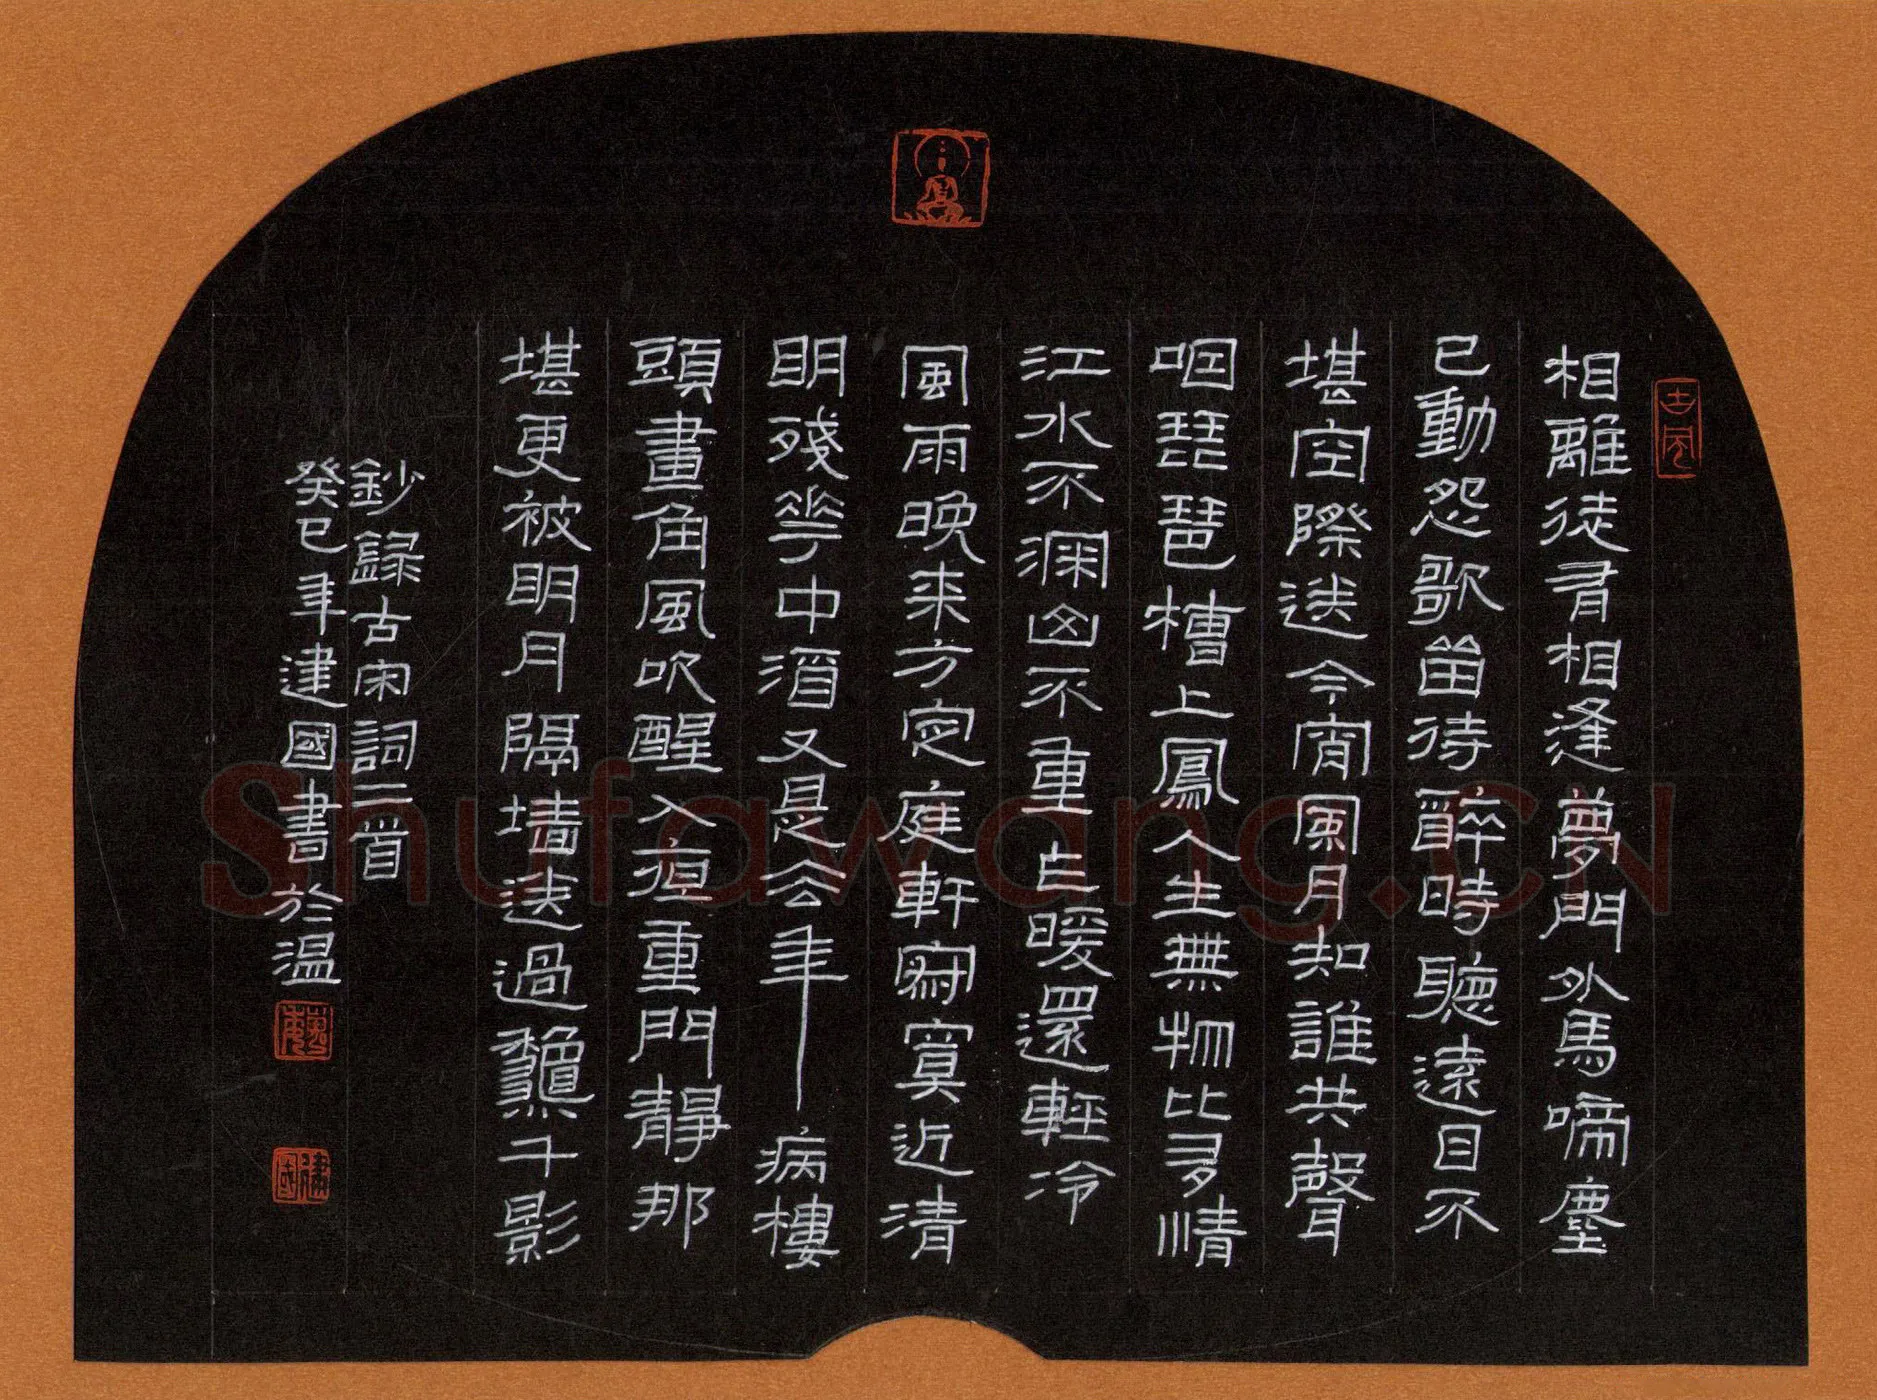 相離徒有相逢夢門外馬啼塵
已動怨歌留待醉時聽遠目不
堪空際送今宵風月知誰共聲
咽琵琶槽上鳳人生無物比多情
江水不深山不重乍暖還輕冷
風雨晚来方定庭軒寂寞近清
明殘花中酒又是去年病樓
頭畫角風吹醒入夜重門靜那
堪更被明月隔墙送過龝千影
鈔録古宋詞二首
癸巳年建國書於温
建國
Shufawang.CN